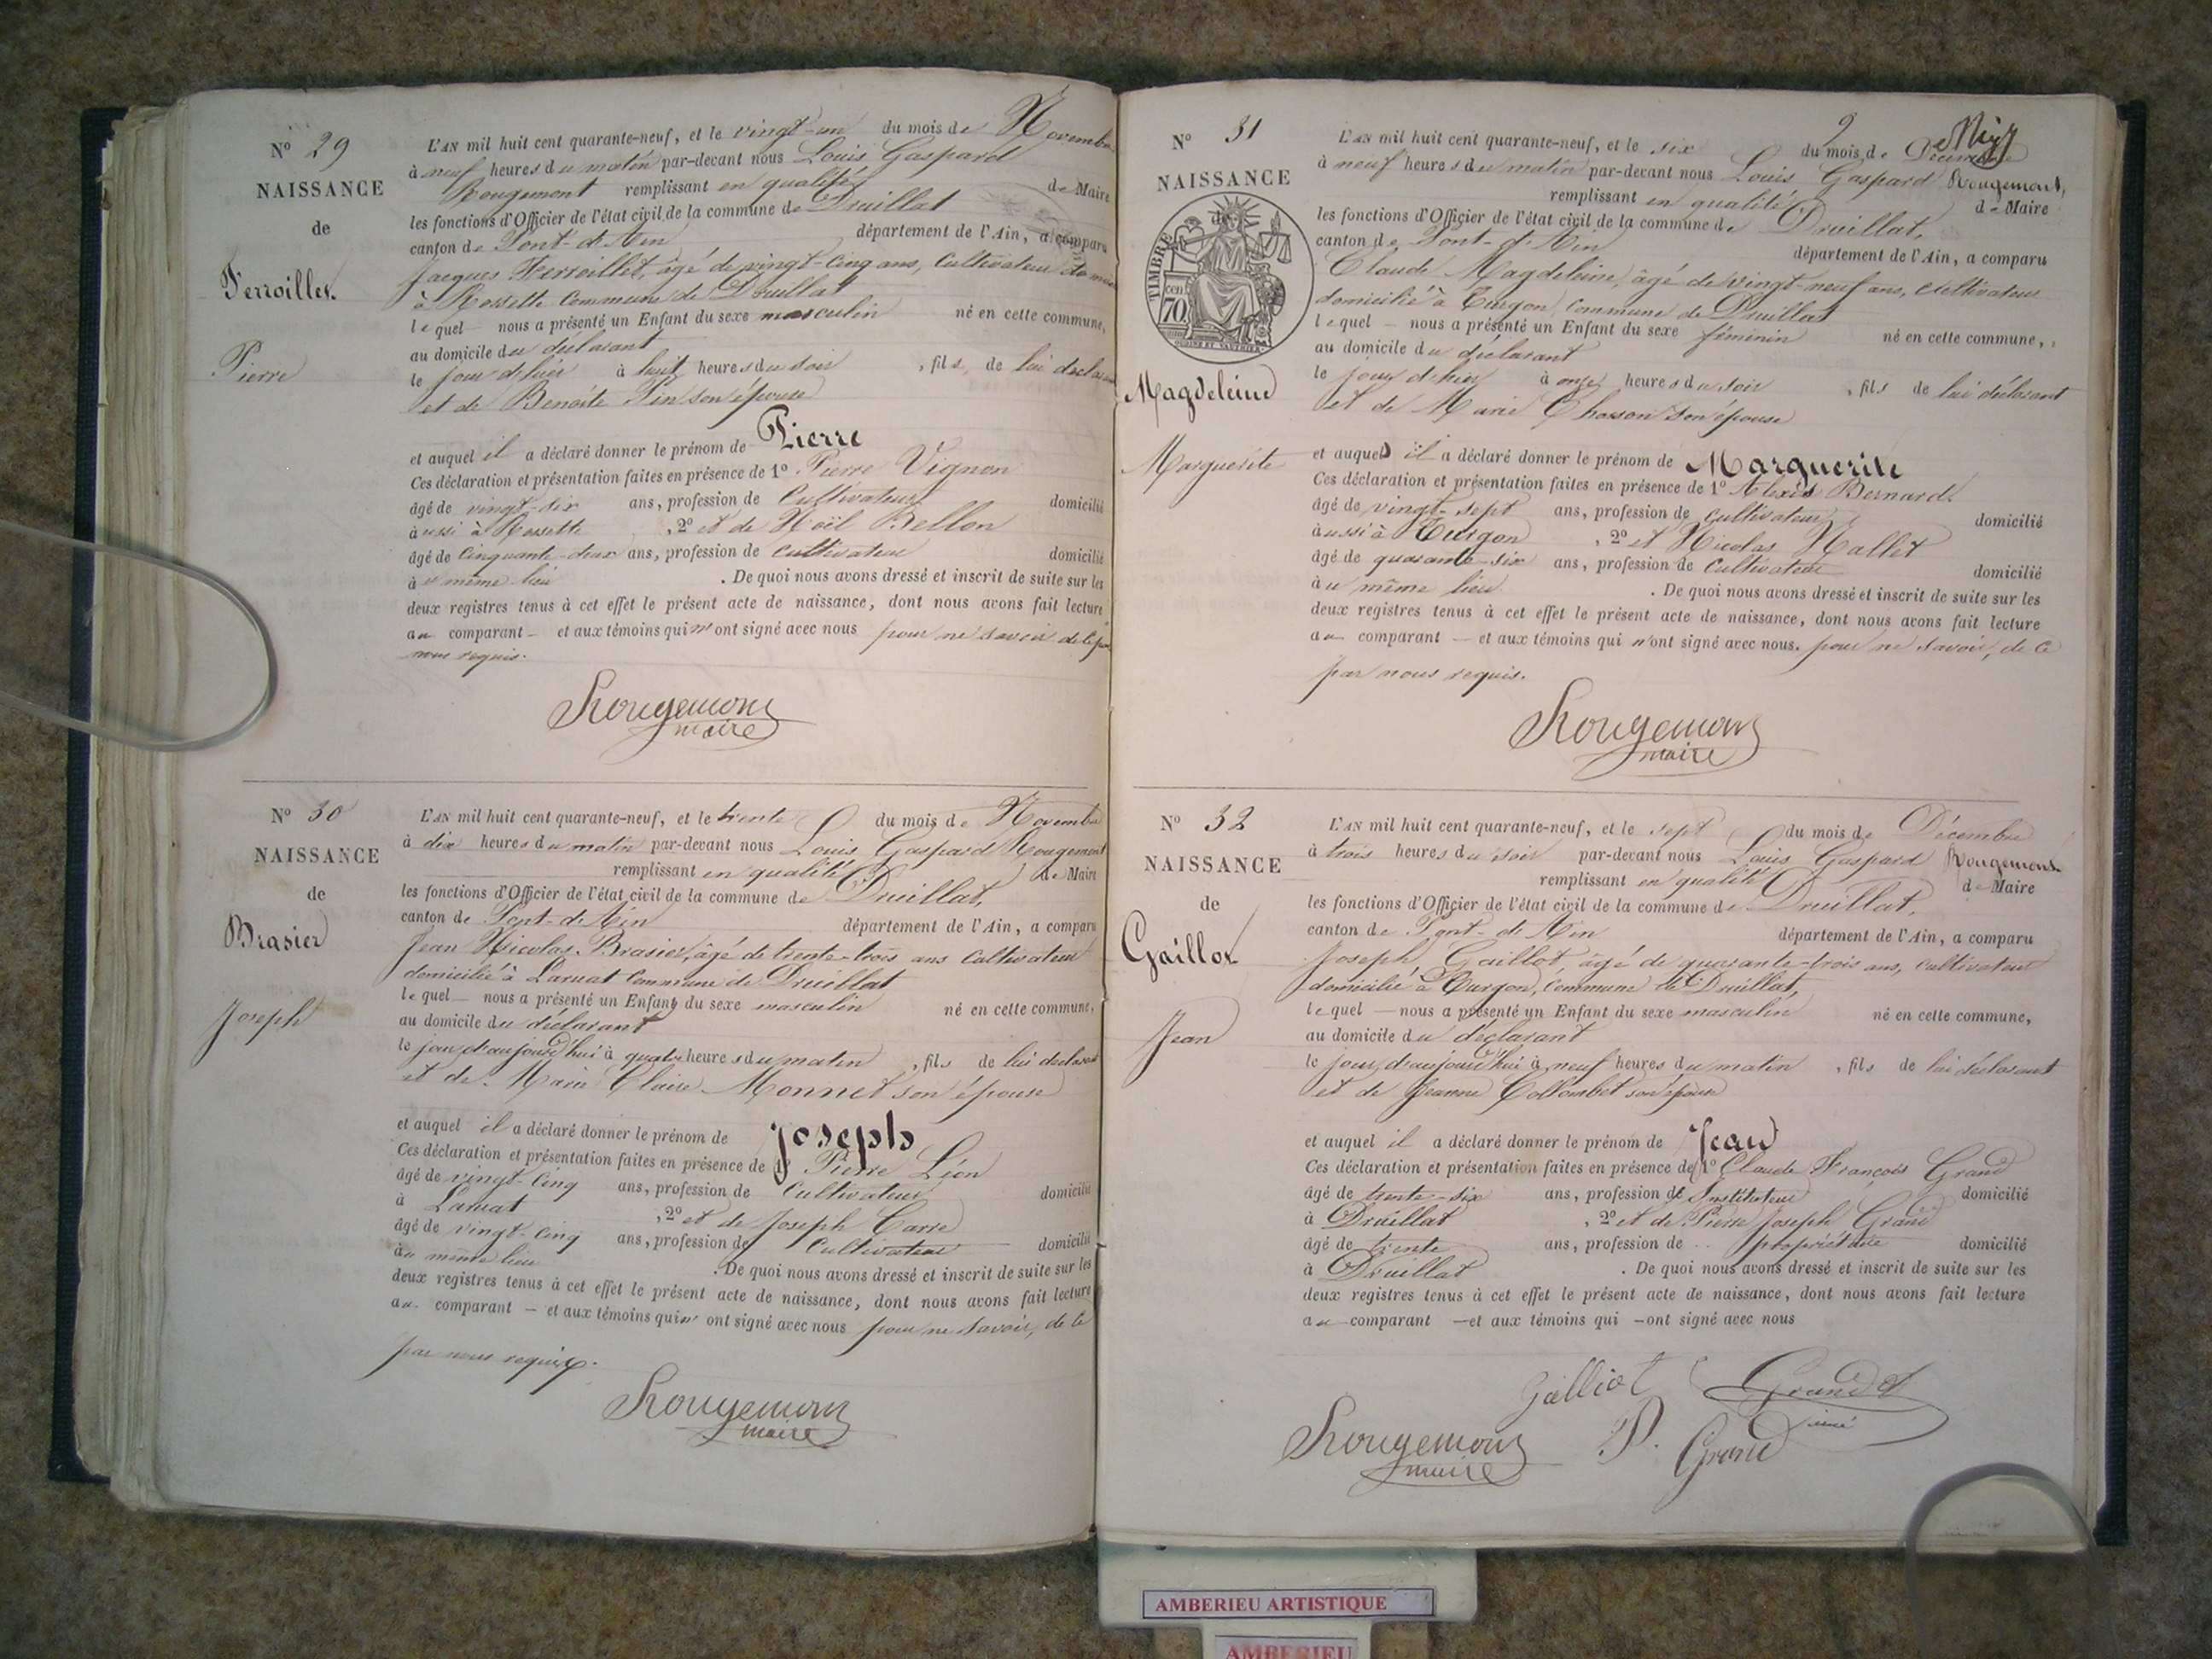 N° 29
NAISSANCE
de
Ferroillet
Pierre
L'AN mil huit cent quarante-neuf, et le vingt-un du mois de Novembre
à neuf heures du matin par-devant nous Louis Gaspard
Rougemont remplissant en qualité de Maire
les fonctions d'Officier de l'état civil de la commune de Druillat
canton de Pont-d'Ain département de l'Ain, a comparu
Jacques Ferroillet, âgé de vingt-cinq ans, Cultivateur
à Rossette Commune de Druillat
lequel nous a présenté un Enfant du sexe masculin né en cette commune,
au domicile du déclarant
le jour d'hier à huit heures du soir, fils de lui déclarant
et de Benoite Pin son épouse
et auquel il a déclaré donner le prénom de Pierre
Ces déclaration et présentation faites en présence de 1° Pierre Vignon
âgé de vingt-six ans, profession de Cultivateur domicilié
à ussi à Rossette, 2° et de Noël Bellon
âgé de Cinquante-deux ans, profession de cultivateur domicilié
à u même lieu. De quoi nous avons dressé et inscrit de suite sur les
deux registres tenus à cet effet le présent acte de naissance, dont nous avons fait lecture
au comparant et aux témoins qui n'ont signé avec nous pour ne savoir de ce par
nous requis.
Rougemont
maire
N° 30
NAISSANCE
de
Brasier
Joseph
L'AN mil huit cent quarante-neuf, et le trente du mois de Novembre
à dix heures du matin par-devant nous Louis Gaspard Rougemont
remplissant en qualité de Maire
les fonctions d'Officier de l'état civil de la commune de Druillat,
canton de Pont-d'Ain département de l'Ain, a comparu
Jean Nicolas Brasier, âgé de trente-trois ans Cultivateur
domicilié à Larnat Commune de Druillat
lequel nous a présenté un Enfant du sexe masculin né en cette commune,
au domicile du déclarant
le jour d'aujourd'hui à quatre heures du matin, fils de lui déclarant
et de Marie Claire Monnet son épouse
et auquel il a déclaré donner le prénom de Joseph
Ces déclaration et présentation faites en présence de 1° Pierre Léon
âgé de vingt-cinq ans, profession de Cultivateur domicilié
à Larnat, 2° et de Joseph Carre
âgé de vingt-cinq ans, profession de Cultivateur domicilié
au même lieu. De quoi nous avons dressé et inscrit de suite sur les
deux registres tenus à cet effet le présent acte de naissance, dont nous avons fait lecture
au comparant et aux témoins qui n'ont signé avec nous pour ne savoir, de ce
par nous requis.
Rougemont
maire
9
N° 31
NAISSANCE
de
TIMBRE
70 cen
Magdeleine
Marguerite
L'AN mil huit cent quarante-neuf, et le six du mois de Décembre
à neuf heures du matin par-devant nous Louis Gaspard Rougemont,
remplissant en qualité de Maire
les fonctions d'Officier de l'état civil de la commune de Druillat,
canton de Pont-d'Ain département de l'Ain, a comparu
Claude Magdeleine, âgé de vingt-neuf ans, cultivateur
domicilié à Turgon, commune de Druillat
lequel nous a présenté un Enfant du sexe féminin né en cette commune,
au domicile du déclarant
le jour d'hier à onze heures du soir, fils de lui déclarant
et de Marie Chosson son épouse
et auquel il a déclaré donner le prénom de Marguerite
Ces déclaration et présentation faites en présence de 1° Alexis Bernard
âgé de vingt-sept ans, profession de cultivateur domicilié
à ussi à Turgon, 2° et Nicolas Hallet
âgé de quarante-six ans, profession de Cultivateur domicilié
àu même lieu. De quoi nous avons dressé et inscrit de suite sur les
deux registres tenus à cet effet le présent acte de naissance, dont nous avons fait lecture
au comparant et aux témoins qui n'ont signé avec nous. pour ne savoir, de ce
par nous requis.
Rougemont
maire
N° 32
NAISSANCE
de
Gaillot
Jean
L'AN mil huit cent quarante-neuf, et le sept du mois de Décembre
à trois heures du soir par-devant nous Louis Gaspard Rougemont
remplissant en qualité de Maire
les fonctions d'Officier de l'état civil de la commune de Druillat,
canton de Pont-d'Ain département de l'Ain, a comparu
Joseph Gaillot âgé de quarante-trois ans, cultivateur
domicilié à Turgon, Commune de Druillat,
lequel nous a présenté un Enfant du sexe masculin né en cette commune,
au domicile du déclarant
le jour d'aujourd'hui à neuf heures du matin, fils de lui déclarant
et de Jeanne Collombet son épouse
et auquel il a déclaré donner le prénom de Jean
Ces déclaration et présentation faites en présence de 1° Claude François Grand
âgé de trente-six ans, profession de Instituteur domicilié
à Druillat, 2° et de Pierre Joseph Grand
âgé de trente ans, profession de propriétaire domicilié
à Druillat. De quoi nous avons dressé et inscrit de suite sur les
deux registres tenus à cet effet le présent acte de naissance, dont nous avons fait lecture
au comparant et aux témoins qui ont signé avec nous
Galliot Grand
Rougemont P. Grand
maire
AMBERIEU ARTISTIQUE
AMBERIEU